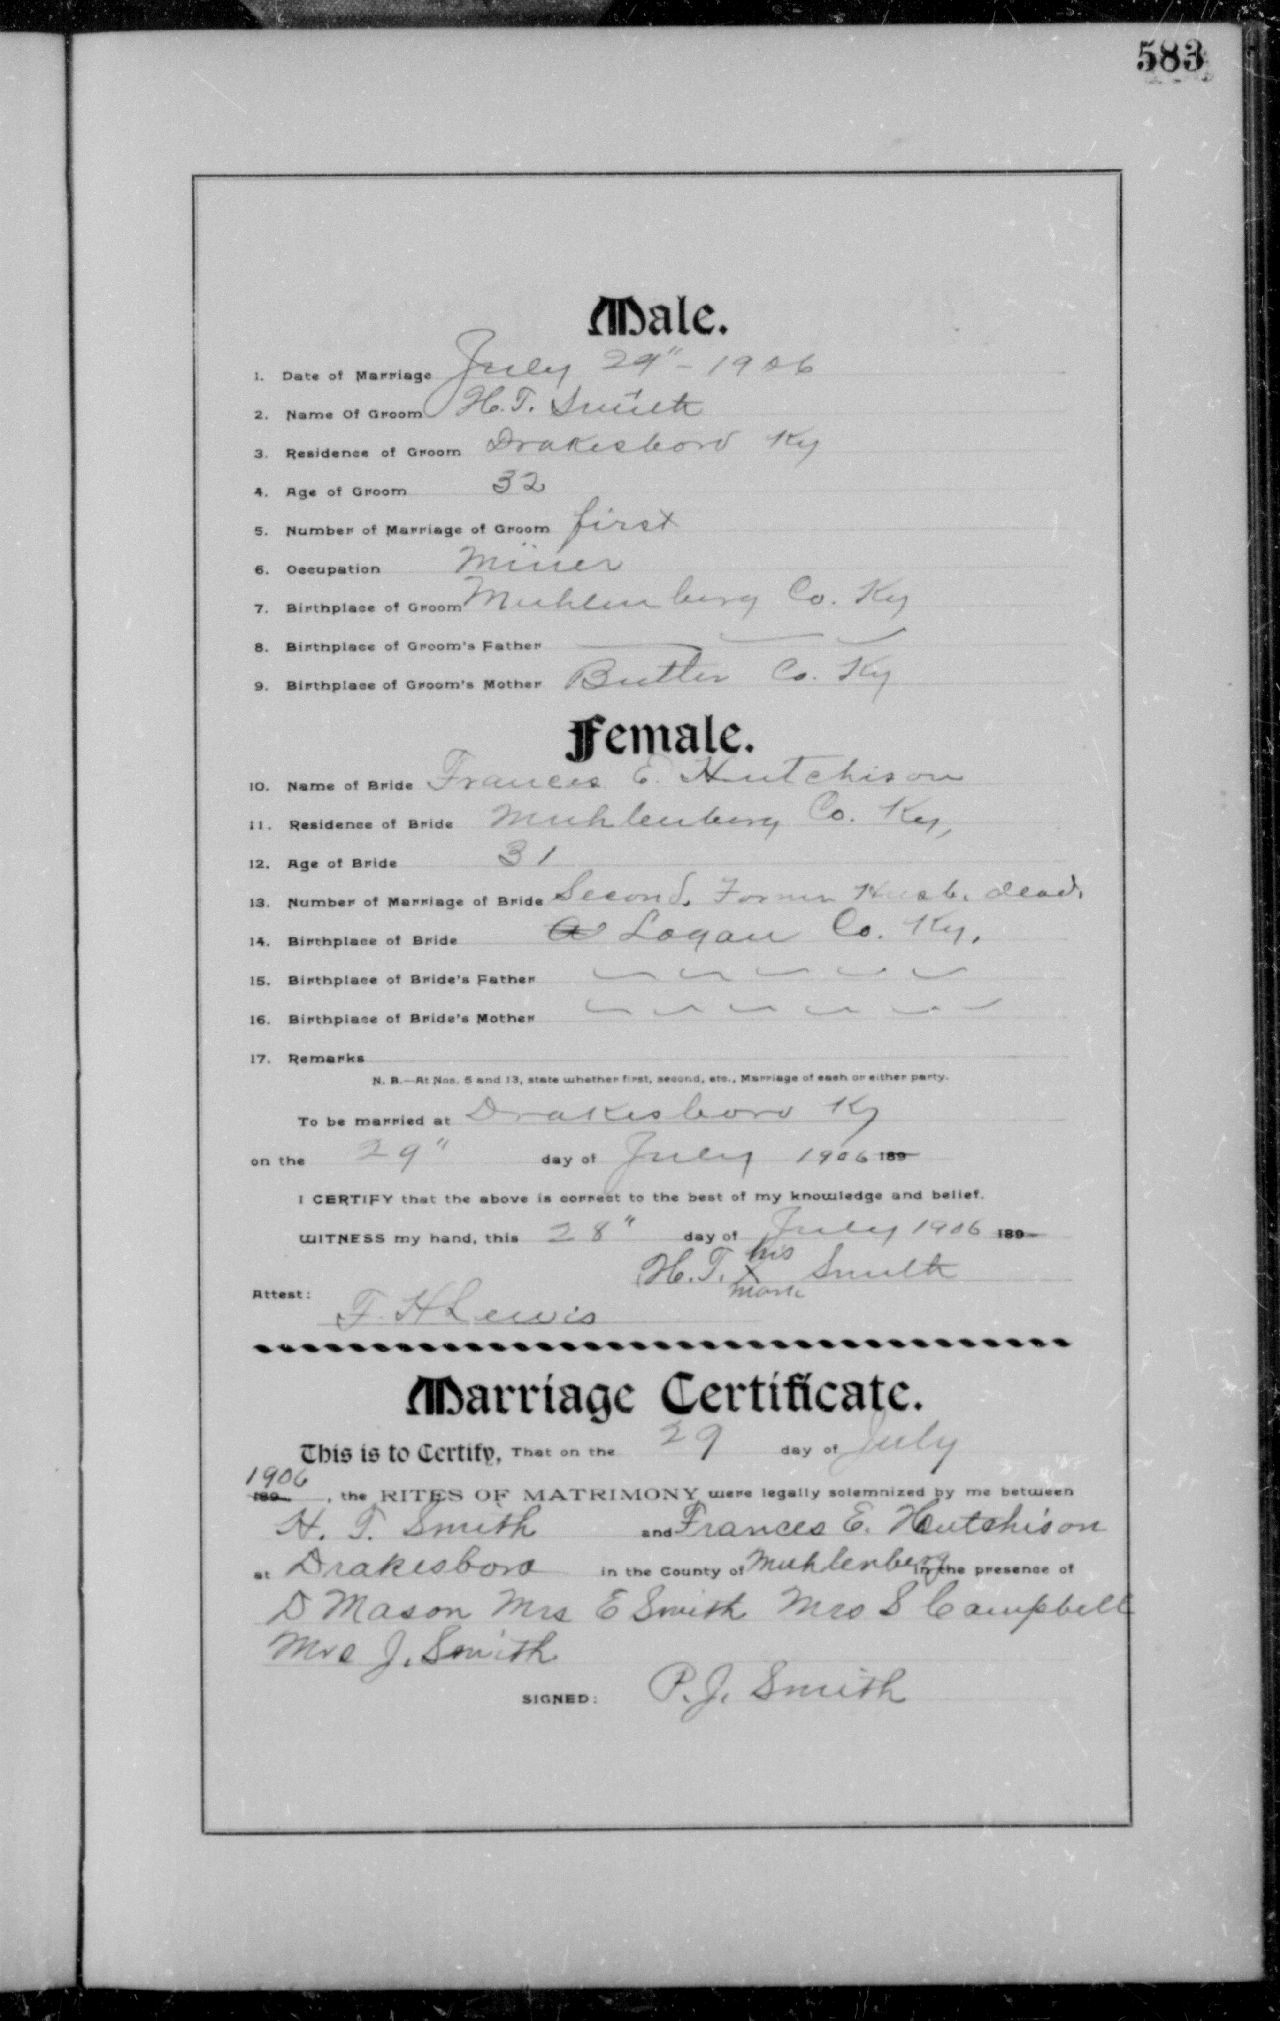 583
Male.
1. Date of Marriage July 29" - 1906
2. Name Of Groom H. T. Smith
3. Residence of Groom Drakesboro Ky
4. Age of Groom 32
5. Number of Marriage of Groom first
6. Occupation Miner
7. Birthplace of Groom Muhlenberg Co. Ky
8. Birthplace of Groom's Father
9. Birthplace of Groom's Mother Butler Co. Ky
Female.
10. Name of Bride Frances E. Hutchison
11. Residence of Bride Muhlenberg Co. Ky,
12. Age of Bride 31
13. Number of Marriage of Bride Second. Former Husb. dead.
14. Birthplace of Bride Logan Co. Ky.
15. Birthplace of Bride's Father
16. Birthplace of Bride's Mother
17. Remarks
N. B.—At Nos. 5 and 13, state whether first, second, etc., Marriage of each or either party.
To be married at Drakesboro Ky
on the 29" day of July 1906 189
I CERTIFY that the above is correct to the best of my knowledge and belief.
WITNESS my hand, this 28" day of July 1906 189
his
H. T. x Smith
mark
Attest: F. H Lewis
Marriage Certificate.
This is to Certify, That on the 29 day of July
1906
189 , the RITES OF MATRIMONY were legally solemnized by me between
H. T. Smith and Frances E. Hutchison
at Drakesboro in the County of Muhlenberg in the presence of
D Mason Mrs E Smith Mrs S Campbell
Mrs J. Smith
SIGNED: P. J. Smith